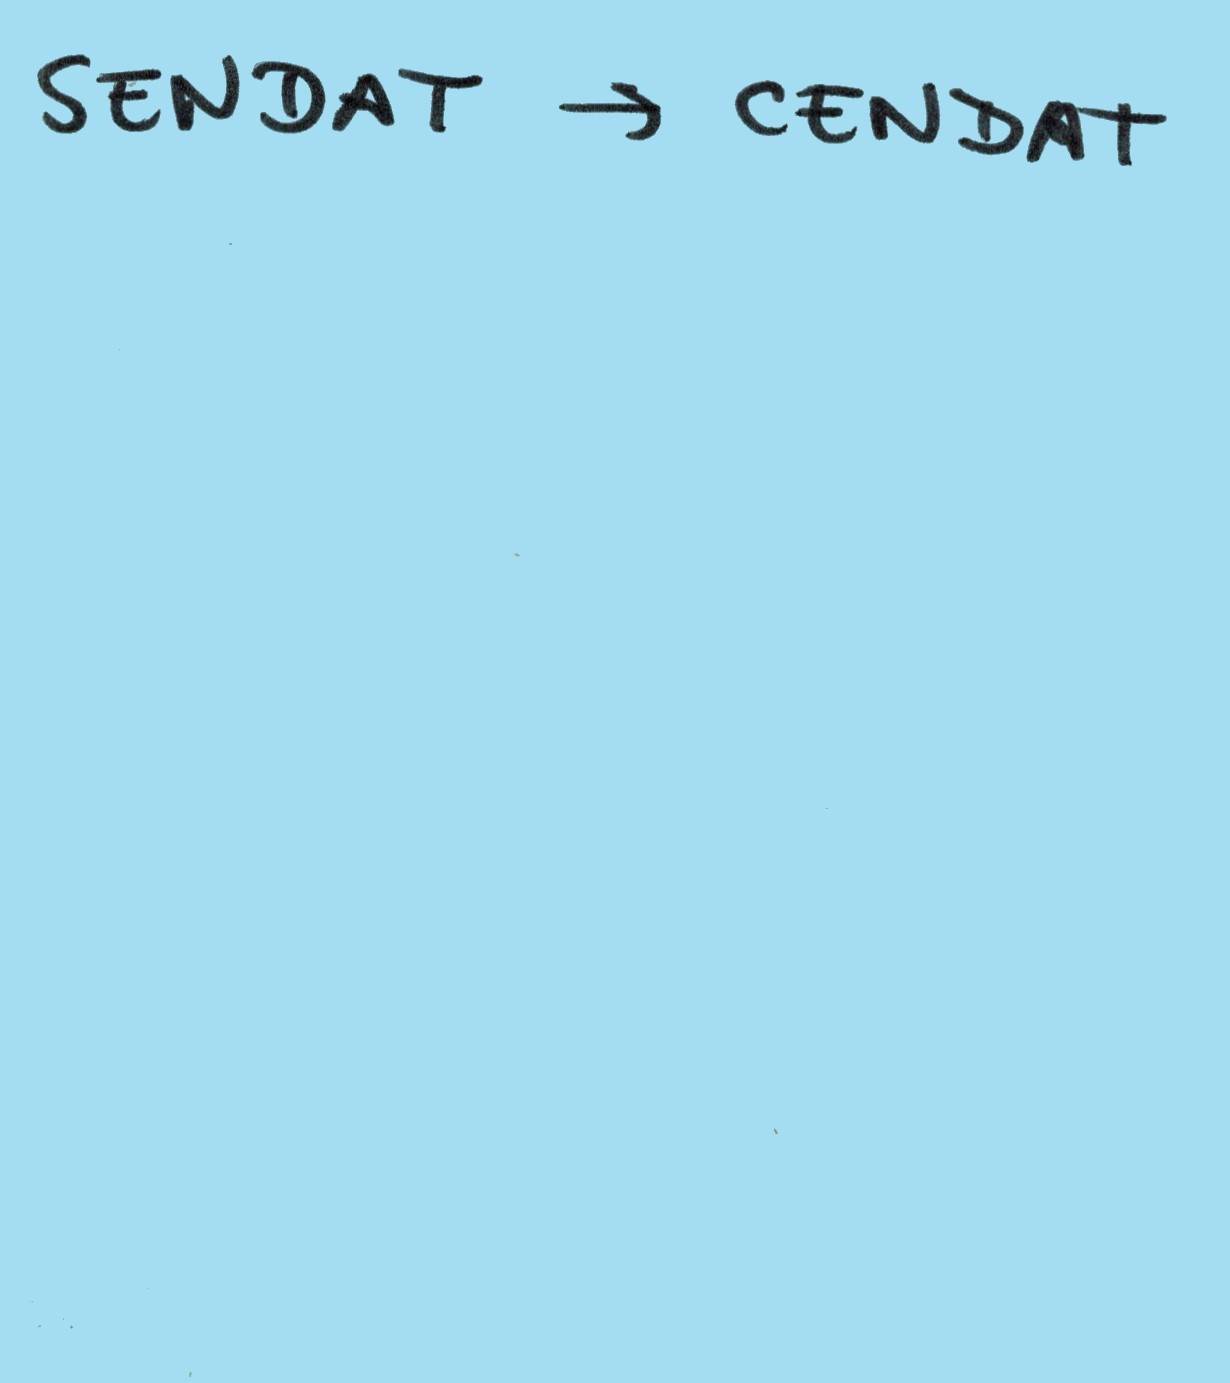 SENDAT → CENDAT